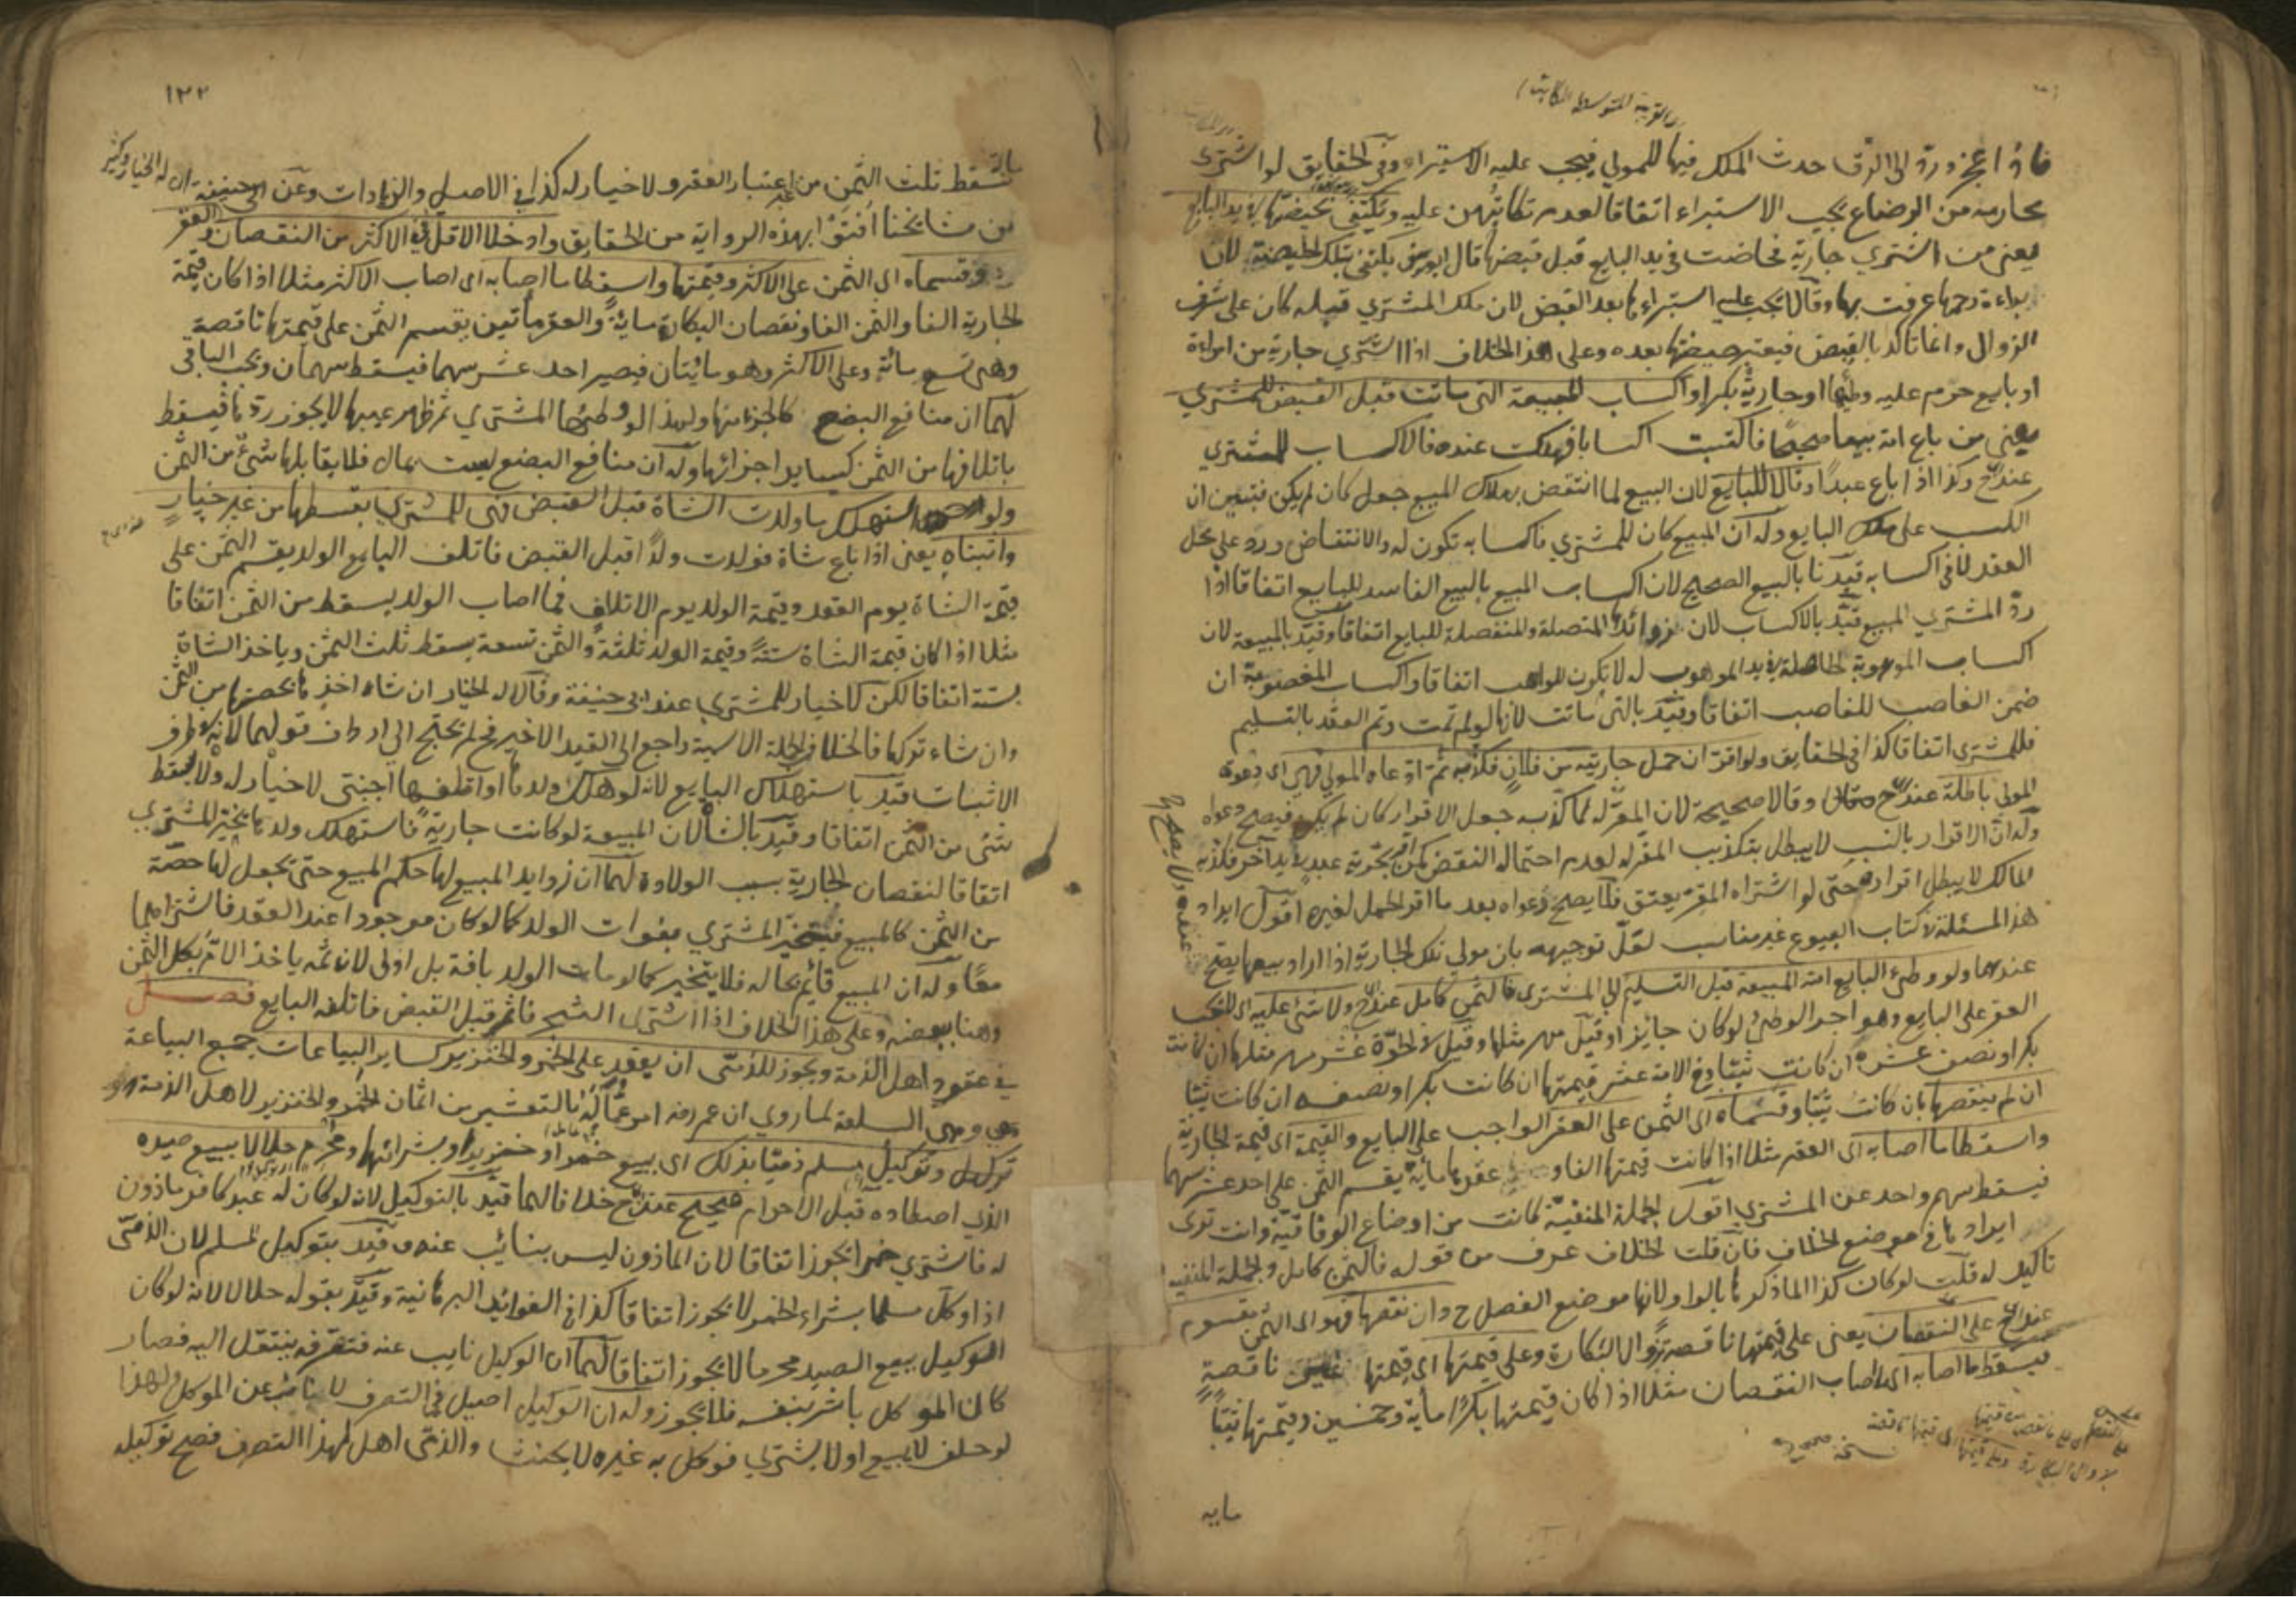 فاذا عجز ورد الى الرق حدث الملك فيها للمولي فيجب عليه الاستبراء وفي الحقايق لو اشترى
محارمه من الرضاع يجب الاستبراء اتفاقا لعدم تكاتبهن عليه ويكتفى بحيضتها في يد البايع
يعني من اشتري جارية فحاضت في يد البايع قبل قبضها قال ابو يوسف يكتفى بتلك الحيضة لان
براءة رحمها عرفت بها وقالا يجب عليه استبراءها بعد القبض لان ملك المشتري قبله كان على شرف
الزوال وانما تاكد بالقبض فيعتبر حيضها بعده وعلى هذا الخلاف اذا اشتري جارية من امراءة
او بايع حرم عليه وطئها او جارية بكرا واكساب المبيعة التي ماتت قبل القبض للمشتري
يعني من باع امة بيعا صحيحا فاكتسبت اكسابا فهلكت عنده فالاكساب للمشتري
عند ح وكذا اذا باع عبدا وقالا للبايع لان البيع لما انتقض بهلاك المبيع جعل كان لم يكن فتبين ان
الكسب على ملك البايع وله ان المبيع كان للمشتري فاكسابه تكون له والانتقاض ورد على محل
العقد لا في اكسابه قيدنا بالبيع الصحيح لان اكساب المبيع بالبيع الفاسد للبايع اتفاقا اذا
رد المشتري المبيع قيد بالاكساب لان زوائده المتصلة والمنفصلة للبايع اتفاقا وقيد بالمبيعة لان
اكساب الموهوبة الحاصلة في يد الموهوب له لا يكون للواهب اتفاقا واكساب المغصوبة ان
ضمن الغاصب للغاصب اتفاقا وقيد بالتي ماتت لانها لو لم تمت وتم العقد بالتسليم
فللمشتري اتفاقا كذا في الحقايق ولو اقر ان حمل جاريته من فلان فكذبه ثم ادعاه المولي فهي اى دعوة
المولى باطلة عند ح وقالا صحيحة لان المقر له لما كذبه جعل الاقرار كان لم يكن فيصح دعواه
وله ان الاقرار بالنسب لا يبطل بتكذيب المقر له لعدم احتماله النقض كمن اقر بحرية عبد في يد آخر فكذبه
المالك لا يبطل اقراره حتى لو اشتراه المقر يعتق فلا يصح دعواه بعد ما اقر الحمل لغيره اقول ايراد
هذا المسئلة في كتاب البيوع غير مناسب لعل توجيهه بان مولي تلك الجارية اذا اراد بيعها يصح
عندهما ولو وطئ البايع امته المبيعة قبل التسليم الي المشتري فالثمن كامل عند ح ولا شئ عليه اى لا يجب
العقر على البايع وهو اجر الوطئ لو كان جايزا وقيل مهر مثلها وقيل في الحرة عشر مهر مثلها ان كانت
بكرا ونصف عشره ان كانت ثيبا وفي الامة عشر قيمتها ان كانت بكرا ونصفه ان كانت ثيبا
ان لم ينقصها بان كانت ثيبا وقسماه اى الثمن على العقر الواجب على البايع والقيمة اى قيمة الجارية
واسقطا ما اصابه اى العقر مثلا اذا كانت قيمتها الفا وعقرها مأية يقسم الثمن على احد عشر سهما
فيسقط سهم واحد عن المشتري اقول الجملة المنفية كانت من اوضاع الوفاقية وانت ترى
ايرادها في موضع الخلاف فان قلت الخلاف عرف من قوله فالثمن كامل والجملة المنفية
تاكيد له قلت لو كان كذا لما ذكرها بالواو ولانها موضع الفصل ح وان نقصها فهو اى الثمن مقسوم
عند ح على النقصان يعني على قيمتها ناقصة بزوال البكارة وعلى قيمتها اى قيمتها غير ناقصة
فيسقط ما اصابه اى ما اصاب النقصان مثلا اذا كان قيمتها بكرا مأية وخمسين وقيمتها ثيبا
مايه
١٢٢
فسقط ثلث الثمن من غير اعتبار العقر ولا خيار له كذا في الاصل والزيادات وعن ابى حنيفة ان له الخيار وكثير
من مشايخنا افتوا بهذه الرواية من الحقايق وادخلا الاقل في الاكثر من النقصان والعقر
وقسماه اى الثمن على الاكثر وقيمتها واسقطا ما اصابه اى اصاب الاكثر مثلا اذا كان قيمة
الجارية الفا والثمن الفا ونقصان البكارة ماية والعقر مأتين يقسم الثمن على قيمتها ناقصة
وهي تسع مائة وعلى الاكثر وهو مائتان فيصير احد عشر سهما فيسقط سهمان ويجب الباقي
لهما ان منافع البضع كالجزء منها ولهذا لو وطئها المشتري ثم ظهر عيبها لا يجوز ردها فيسقط
باتلافها من الثمن كساير اجزائها وله ان منافع البضع ليست بمال فلا يقابلها شئ من الثمن
ولو استهلك ما ولدت الشاة قبل القبض فهي للمشتري بقسطها من غير خيار
واثبتاه يعني اذا باع شاة فولدت ولدا قبل القبض فاتلف البايع الولد يقسم الثمن على
قيمة الشاة يوم العقد وقيمة الولد يوم الاتلاف فما اصاب الولد يسقط من الثمن اتفاقا
مثلا اذا كان قيمة الشاة ستة وقيمة الولد ثلثة والثمن تسعة يسقط ثلث الثمن وياخذ الشاة
بستة اتفاقا لكن لا خيار للمشتري عند ابى حنيفة وقالا له الخيار ان شاء اخذها بحصتها من الثمن
وان شاء تركها فالخلاف في الجملة الاسمية راجع الى القيد الاخير فح لم يحتج الى ارداف قولهما لانه في طرف
الاثبات قيد باستهلاك البايع لانه لو هلك ولدها او اتلفها اجنبي لا خيار له ولا يسقط
شئ من الثمن اتفاقا وقيد بالشاة لان المبيعة لو كانت جارية فاستهلك ولدها يخير المشتري
اتفاقا لنقصان الجارية بسبب الولادة لهما ان زوايد المبيع لها حكم المبيع حتى يجعل لها حصة
من الثمن كالمبيع فيتخير المشتري بفوات الولد كما لو كان موجودا عند العقد فاشتراهما
معا وله ان المبيع قائم بحاله فلا يتخير كما لو مات الولد بافة بل اولى لان ثمه ياخذ الام بكل الثمن
وهنا ببعضه وعلى هذا الخلاف اذا اشترى الشجر فاثمر قبل القبض فاتلفه البايع فصل
في عقود اهل الذمة ويجوز للذمي ان يعقد على الخمر والخنزير كساير البياعات جمع البياعة
وهي السلعة لما روي ان عمر رضه امر عماله بالتعشير من اثمان الخمر والخنزير لاهل الذمة
توكل وتوكيل مسلم ذميا بذلك اى ببيع خمر او خنزير او بشرائها ومحرم حلالا ببيع صيده
الذي اصطاده قبل الاحرام صحيح عند ح خلافا لهما قيد بالتوكيل لانه لو كان له عبد كافر ماذون
له فاشتري خمرا يجوز اتفاقا لان الماذون ليس بنائب عنه وقيد بتوكيل المسلم لان الذمي
اذا وكل مسلما بشراء الخمر لا يجوز اتفاقا كذا في الفوايد البرهانية وقيد بقوله حلالا لانه لو كان
الوكيل ببيع الصيد محرما لا يجوز اتفاقا لهما ان الوكيل نايب عنه فتصرفه ينتقل اليه فصار
كان الموكل باشر بنفسه فلا يجوز وله ان الوكيل اصيل في التصرف لا نائب عن الموكل ولهذا
لو حلف لا يبيع او لا يشتري فوكل به غيره لا يحنث والذمي اهل لهذا التصرف فصح توكيله